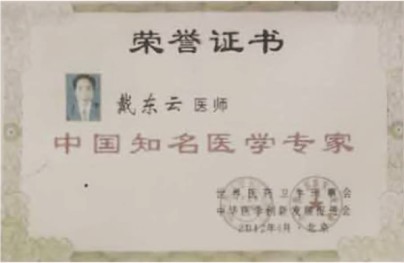 荣誉证书
戴东云 医师
中国知名医学专家
世界医药卫生理事会
中华医学创新发展促进会
2012年 月·北京